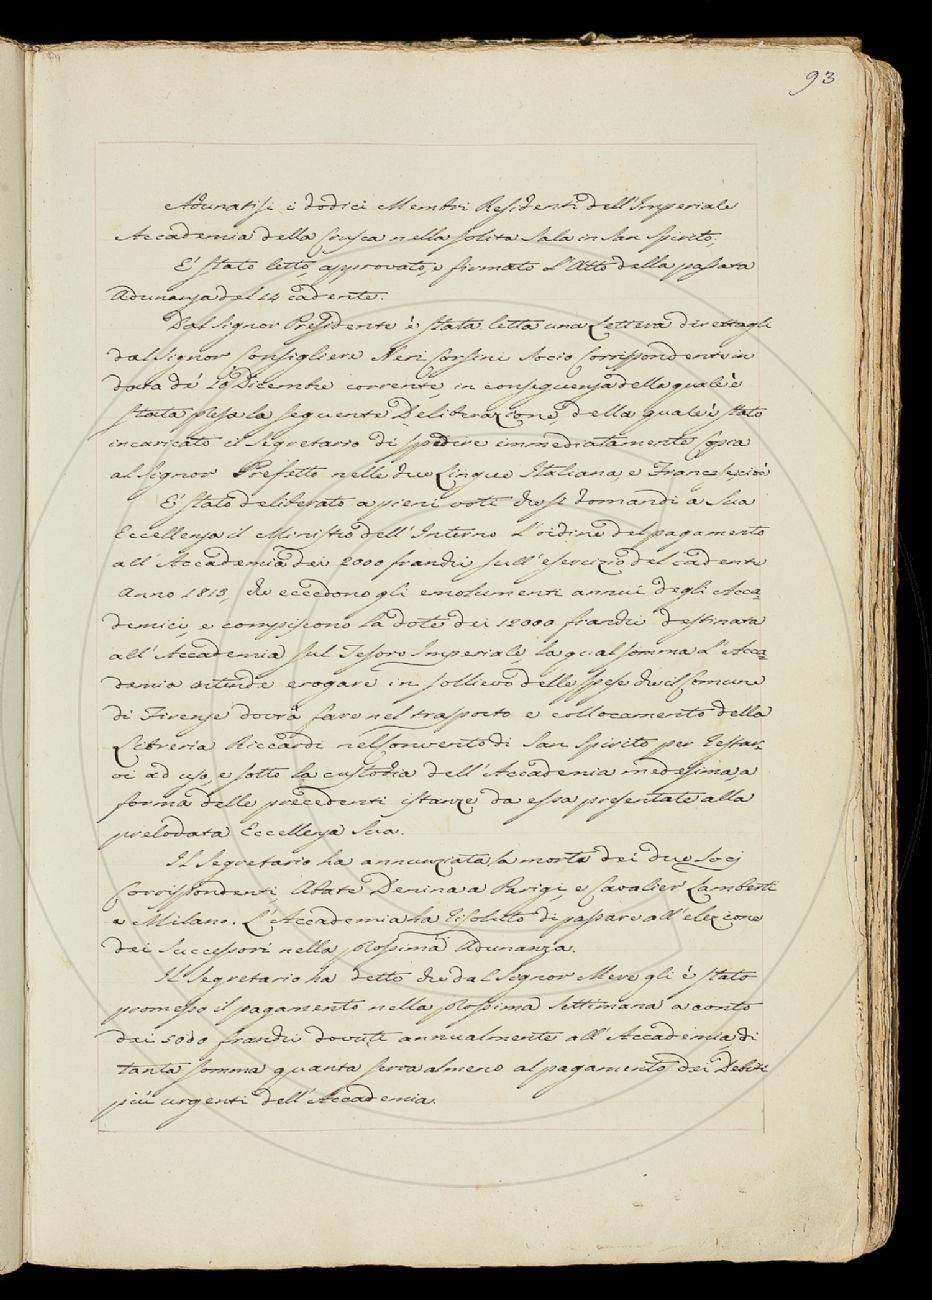 93
Adunatisi i dodici Membri Residenti dell'Imperiale
Accademia della Crusca nella solita Sala in San Spirito,
E' stato letto, approvato, e firmato l'Atto della passata
Adunanza del 14 cadente.
Dal Signor Presidente è stata letta una Lettera direttagli
dal Signor Consigliere Neri Corsini Socio Corrispondente in
data de' Dicembre corrente, in conseguenza della quale è
stata presa la seguente Deliberazione, della quale è stato
incaricato il Segretario di spedire immediatamente Copia
al Signor Prefetto nelle due Lingue Italiana, e Francese, cioè
E' stato deliberato a pieni voti che si domandi a Sua
Eccellenza il Ministro dell'Interno l'ordine del pagamento
all'Accademia dei 2000 franchi sull'esercizio del cadente
Anno 1813, che eccedono gli emolumenti annui degli Acca-
demici, e compiscono la dote dei 12000 franchi destinata
all'Accademia sul Tesoro Imperiale, la qual somma l'Acca-
demia intende erogare in sollievo delle spese che il Comune
di Firenze dovrà fare nel trasporto e collocamento della
Libreria Riccardi nel Convento di San Spirito per restar-
vi ad uso, e sotto la custodia dell'Accademia medesima, a
forma delle precedenti istanze da essa presentate alla
prelodata Eccellenza Sua.
Il Segretario ha annunziata la morte dei due Socj
Corrispondenti, Abate Denina a Parigi, e Cavalier Lamberti
a Milano. L'Accademia ha risoluto di passare all'elezione
dei Successori nella prossima Adunanza.
Il Segretario ha detto che dal Signor Mere gli è stato
promesso il pagamento nella prossima settimana a conto
dei 5000 franchi dovuti annualmente all'Accademia, di
tanta somma quanta serva almeno al pagamento dei Debiti
più urgenti dell'Accademia.